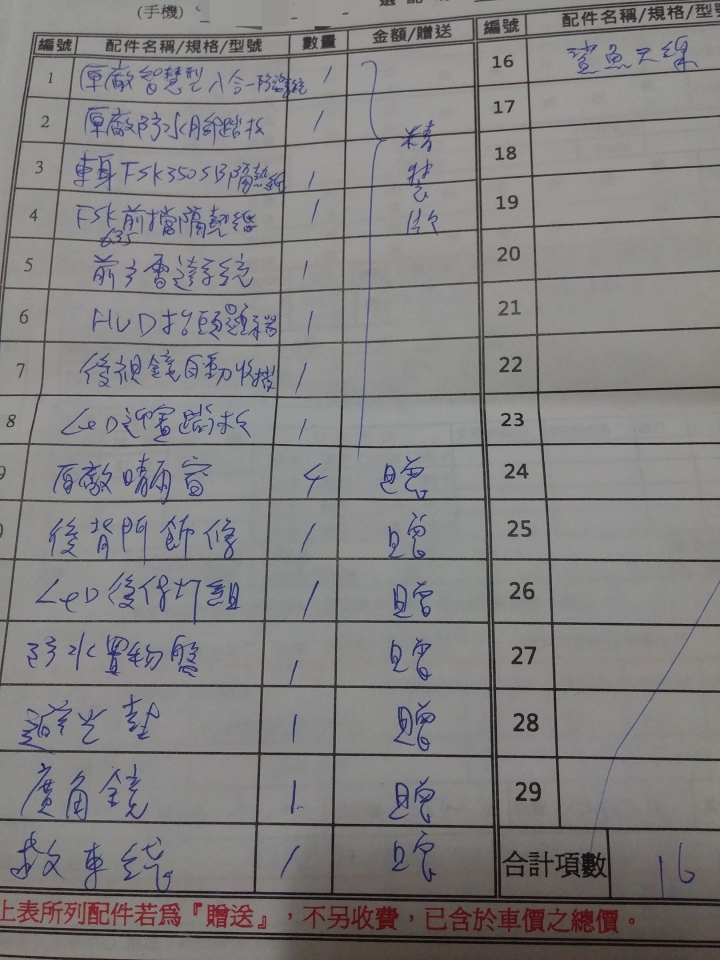 (手機)
編號 配件名稱/規格/型號 數量 金額/贈送
1 原廠智慧型八合一防盜系統 1
2 原廠防水腳踏板 1
3 車身FSK350SB隔熱紙 1
4 FSK前擋隔熱紙 1
635
5 前方雷達系統 1
6 HUD抬頭顯示器 1
7 後視鏡自動收摺 1
8 LED迎賓踏板 1
精
裝
款
原廠晴雨窗 4 贈
後背門飾條 1 贈
LED後保燈組 1 贈
防水置物盤 1 贈
避光墊 1 贈
廣角鏡 1 贈
救車線 1 贈
編號 配件名稱/規格/型號
16 鯊魚天線
17
18
19
20
21
22
23
24
25
26
27
28
29
合計項數 16
上表所列配件若為『贈送』，不另收費，已含於車價之總價。